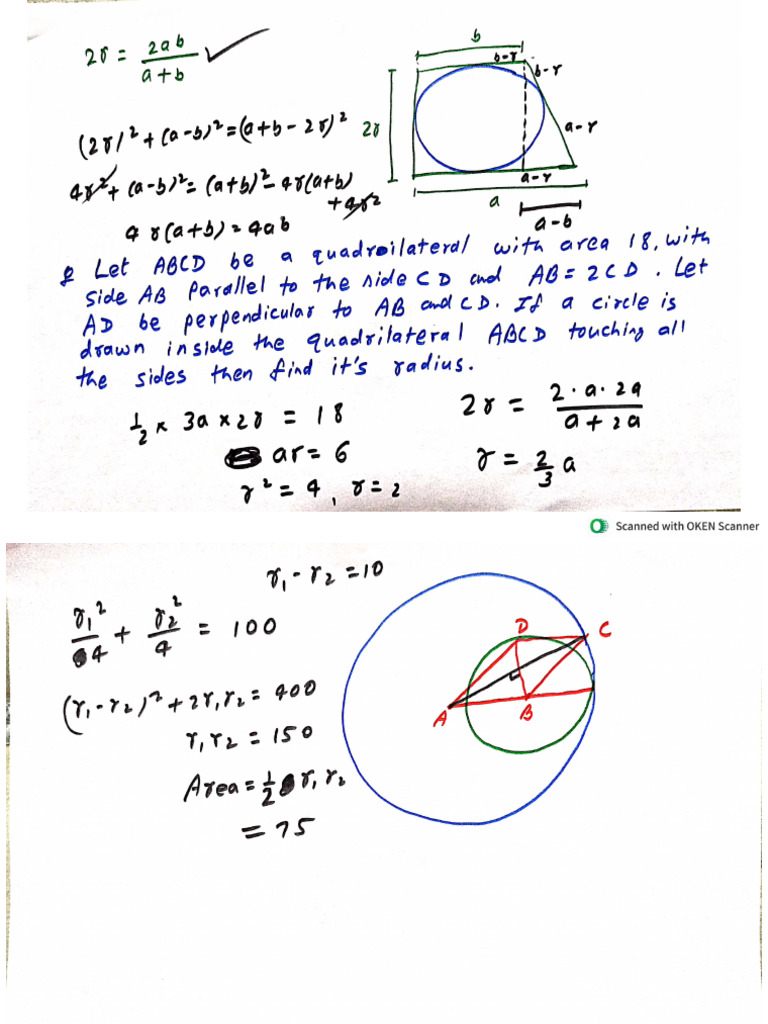 2r = 2ab / a+b ✓
b
b-r
b-r
(2r)² + (a-b)² = (a+b-2r)²
2r
a-r
4r² + (a-b)² = (a+b)² - 4r(a+b)
+4r²
a-r
a
a-b
4r(a+b) = 4ab
Q Let ABCD be a quadroilateral with area 18, with
side AB Parallel to the side CD and AB = 2CD. Let
AD be perpendicular to AB and CD. If a circle is
drawn inside the quadrilateral ABCD touching all
the sides then find it's radius.
1/2 × 3a × 2r = 18
2r = 2·a·2a / a+2a
ar = 6
r = 2/3 a
r² = 4, r = 2
Scanned with OKEN Scanner
r₁ - r₂ = 10
r₁²/4 + r₂²/4 = 100
D
C
(r₁-r₂)² + 2r₁r₂ = 400
A
B
r₁r₂ = 150
Area = 1/2 r₁r₂
= 75